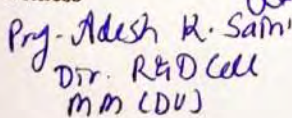 Prof. Adesh K. Saini
Dir. R&D Cell
MM (DU)